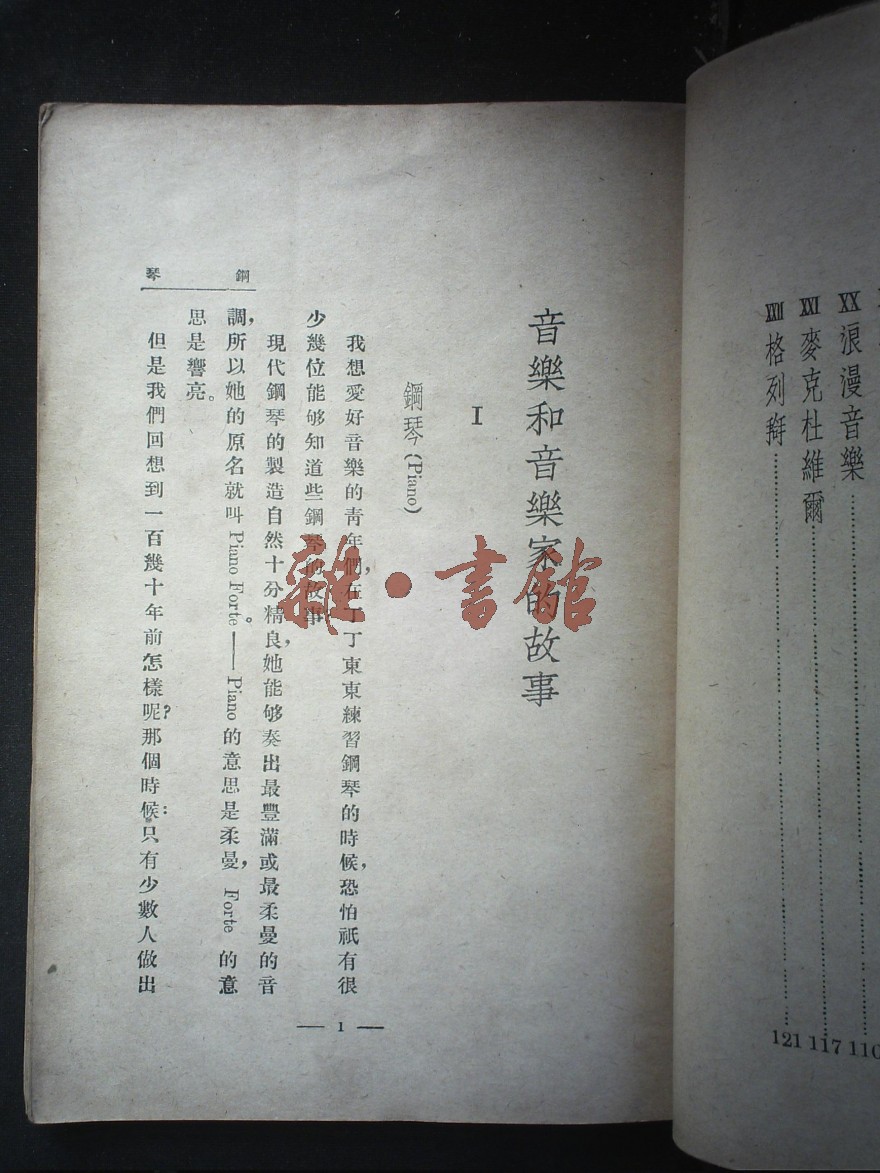 XX 浪漫音樂 110
XXI 麥克杜維爾 117
XXII 格列 121
音樂和音樂家的故事
I
鋼琴 (Piano)
我想愛好音樂的靑年們，在丁丁東東練習鋼琴的時候，恐怕祇有很
少幾位能够知道些鋼琴的故事。
現代鋼琴的製造自然十分精良，她能够奏出最豐滿或最柔曼的音
調，所以她的原名就叫 Piano Forte。—— Piano 的意思是柔曼， Forte 的意
思是響亮。
但是我們回想到一百幾十年前怎樣呢？那個時候：只有少數人做出
鋼琴
— 1 —
雜·書館